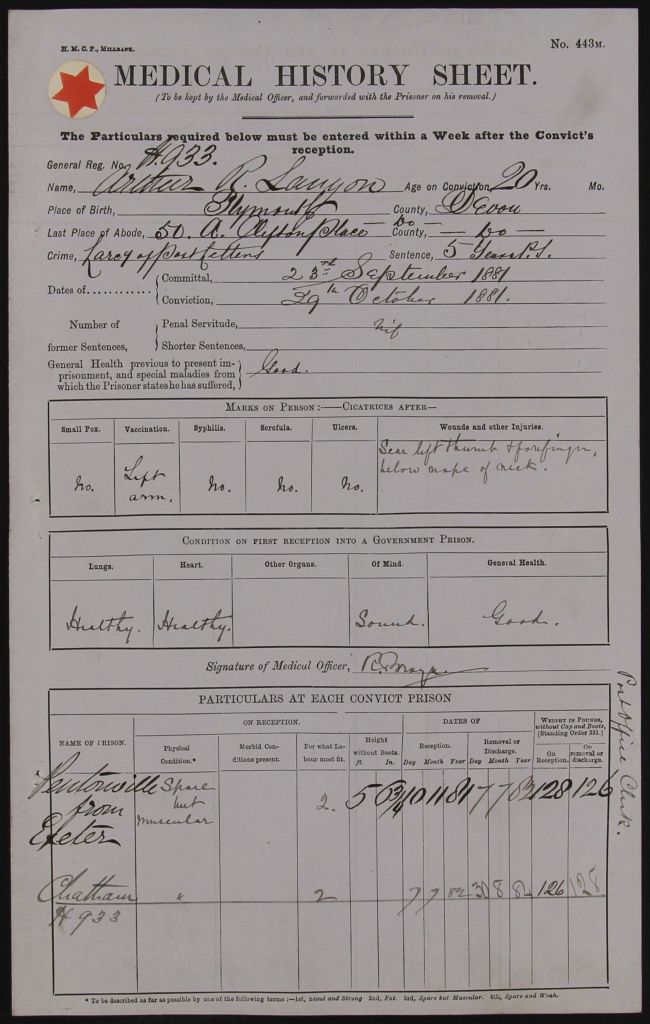 H. M. C. P., Millbank.
No. 443M.
MEDICAL HISTORY SHEET.
(To be kept by the Medical Officer, and forwarded with the Prisoner on his removal.)
The Particulars required below must be entered within a Week after the Convict's
reception.
General Reg. No. H.933.
Name, Arthur R. Lanyon Age on Conviction, 20 Yrs. Mo.
Place of Birth, Plymouth County, Devon
Last Place of Abode, 50. A. Clifton Place — Do — County, — Do —
Crime, Larcy of Post Letters Sentence, 5 Years P.S.
Dates of............ Committal, 23rd September 1881
Conviction, 29th October 1881.
Number of former Sentences, Penal Servitude, Nil
Shorter Sentences,
General Health previous to present im-
prisonment, and special maladies from Good.
which the Prisoner states he has suffered,
Marks on Person :——Cicatrices after—
Small Pox. Vaccination. Syphilis. Scrofula. Ulcers. Wounds and other Injuries.
No. Left arm. No. No. No. Scar left thumb & forefinger,
below nape of neck.
Condition on first reception into a Government Prison.
Lungs. Heart. Other Organs. Of Mind. General Health.
Healthy. Healthy. Sound. Good.
Signature of Medical Officer,
PARTICULARS AT EACH CONVICT PRISON
NAME OF PRISON. ON RECEPTION. DATES OF Weight in Pounds, without Cap and Boots, (Standing Order 331.)
Physical Condition.* Morbid Conditions present. For what Labour most fit. Height without Boots. Reception. Removal or Discharge. On Reception. On removal or discharge.
ft. In. Day Month Year Day Month Year
Pentonville from Exeter Spare but muscular 2. 5 6¾ 10 11 81 7 7 82 128 126
Chatham " 2 7 7 82 30 8 82 126 128
H 933
Post Office Clerk.
* To be described as far as possible by one of the following terms :—1st, Stout and Strong 2nd, Fat. 3rd, Spare but Muscular. 4th, Spare and Weak.